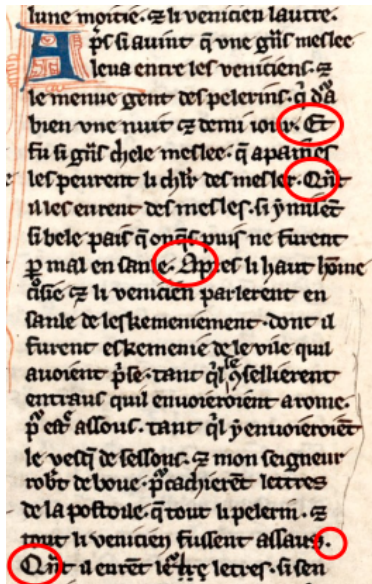 lune moitie. ⁊ li venicien lautre.
Aps̃ si auint q̃ vne gñs meslee
leua entre les veniciens. ⁊
le menue gent des pelerins. q̃ dũa
bien vne nuit ⁊ demi ior. Et
fu si gñs chele meslee. q̃ apaines
les peurent li chlr̃ des mesler. Qñt
il les eurent des mesles. si ẏ milẽt
si bele pais q̃ onq̃s puis ne furent
ꝑ mal en sanle. Apres li haut hõme
c̃isie ⁊ li venicien parlerent en
sanle de leskemeniement. dont il
furent eskemenie de le vile quil
auoient p̃se. tant q̃l se ꝯsellierent
entraus quil enuoieroient a rome.
p̃ estr̃ assous. tant q̃l ẏ enuoieroiẽt
le vesq̃ de sessons. ⁊ mon seigneur
robt̃ de boue. p̃cachierẽt lettres
de la postoile. q̃ tout li pelerin. ⁊
tout li venicien fussent assaus.
Qñt il eurẽt letre letres. si sen